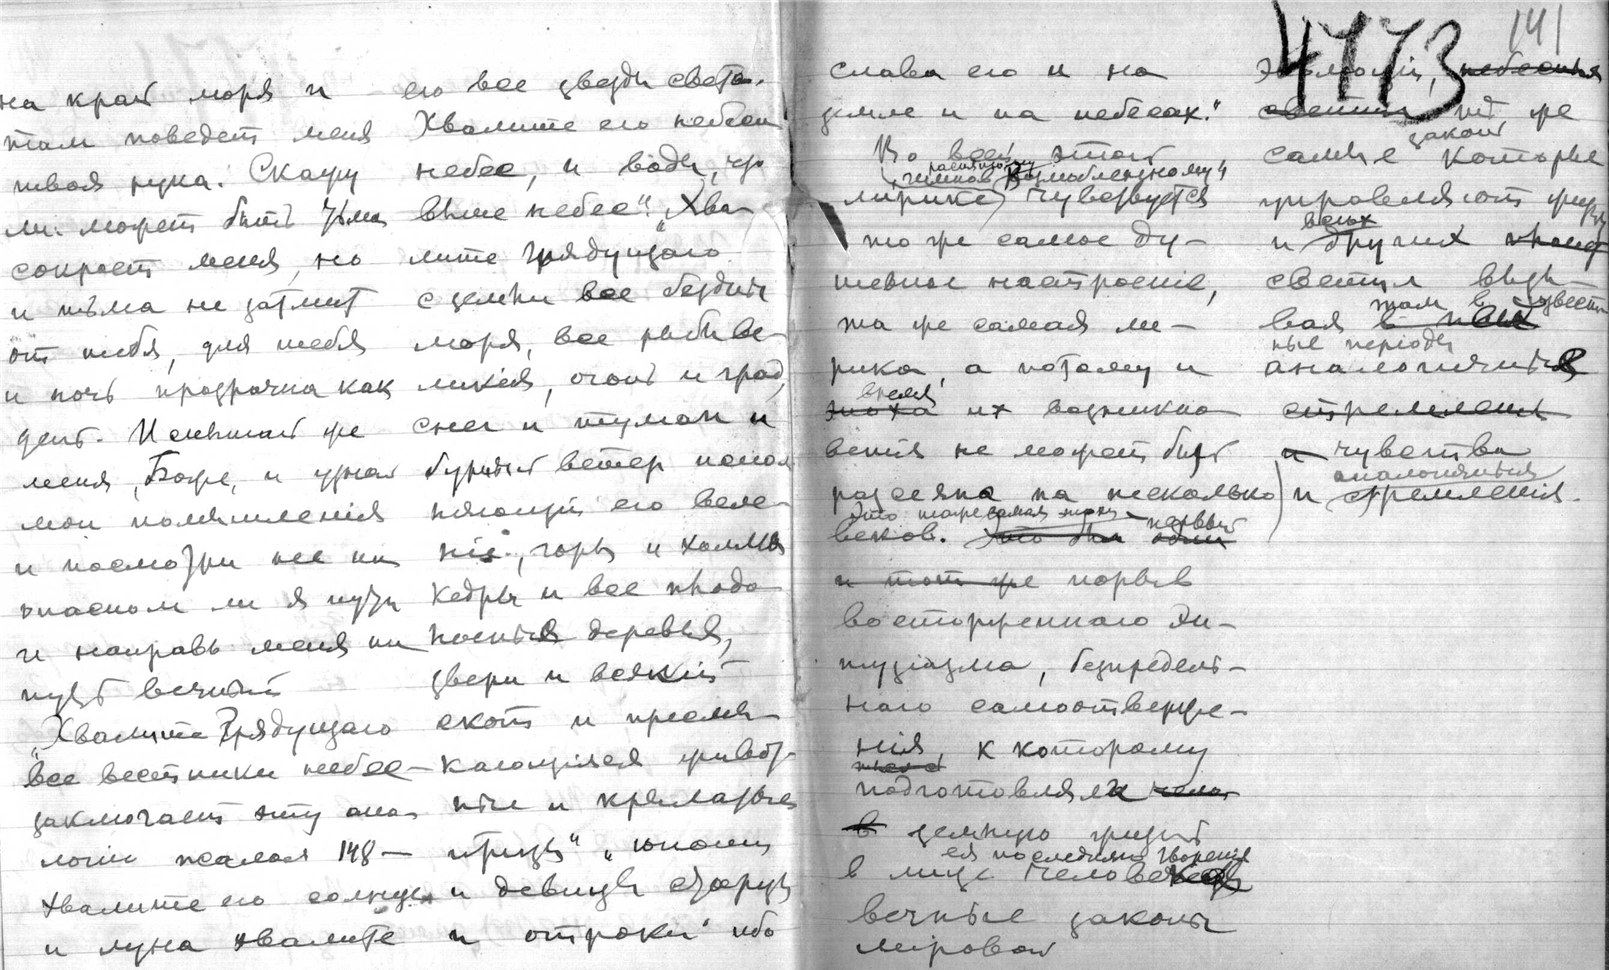 на край моря и
там поведет меня
твоя рука. Скажу
ли: может быть тьма
сокроет меня, но
и тьма не затмит
от тебя, для тебя
и ночь прозрачна как
день. Испытай же
меня, Боже, и узнай
мои помышленія
и посмотри не на
опасном ли я пути
и направь меня на
путь вечный
"Хвалите Грядущаго
все вестники небес—
заключает эту ана
логію псалом 148—
хвалите его солнце
и луна хвалите
его все звезды света.
Хвалите его небеса
небес, и воды, что
выше небес". "Хва-
лите Грядущаго
с земли все бездны
моря, все рыбы ве-
ликія, огонь и град,
снег и туман и
бурный ветер испол
няющій его веле-
нія, горы и холмы
кедры и все плодо
носныя деревья,
звери и всякій
скот и пресмы-
кающіяся живот-
ныя и крылатые
птицы" "юноши
и девицы старцы
и отроки ибо
слава его и на
земле и на небесах."
Во всей этой
(гимнов Возлюбленному)
лирике чувствуется
то же самое ду-
шевное настроеніе,
та же самая ли-
рика, а потому и
время
эпоха их возникно
венія не может быть
разсеяна на несколько
веков. Это был один
первый
и тот же порыв
восторженнаго эн-
тузіазма, безпредель-
наго самоотверже-
нія, к которому
подготовляли
в земную жизнь
ея последняго творенія
в лице человека
вечные законы
мировой
4773
141
эволюціи, небесныя
светила, те же
закон
самые которые
управляют
всех
и других
светил вызы-
там в известн
вая в них
ные періоды
аналогичныя
стремленія
и чувства
аналогичныя
и стремленія.